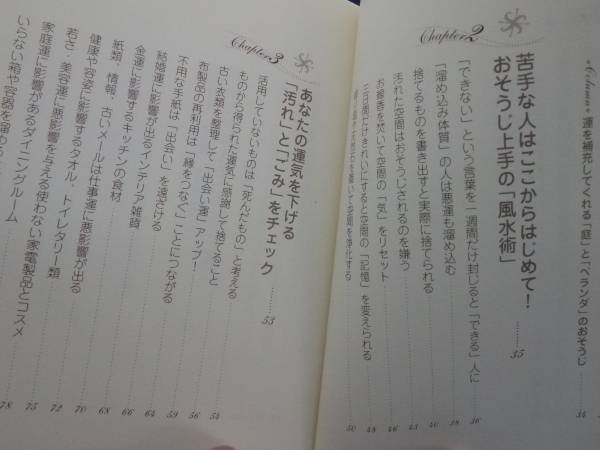 «Column» 運を補充してくれる「庭」と「ベランダ」のおそうじ 34
Chapter 2
苦手な人はここからはじめて！
おそうじ上手の「風水術」 …… 35
「できない」という言葉を一週間だけ封じると「できる」人に 36
「溜め込み体質」の人は悪運も溜め込む 38
捨てるものを書き出すと実際に捨てられる 40
汚れた空間はおそうじされるのを嫌う 43
お線香を焚いて空間の「気」をリセット 46
三日間だけきれいにすると空間の「記憶」を変えられる 48
を置いて空間を浄化する 50
Chapter 3
あなたの運気を下げる
「汚れ」と「ごみ」をチェック …… 53
活用していないものは「死んだもの」と考える 54
ものから得られた運気に感謝して捨てること 56
古い衣類を整理して「出会い運」アップ！ 59
布製品の再利用は「縁をつなぐ」ことにつながる 64
不用な手紙は「出会い」を遠ざける 66
結婚運に影響が出るインテリア雑貨 68
金運に影響するキッチンの食材 70
紙類、情報、古いメールは仕事運に悪影響が出る 72
健康や容姿に影響するタオル、トイレタリー類 75
若さ、美容運に悪影響を与える使わない家電製品とコスメ 78
家庭運に影響があるダイニングルーム
いらない箱や容器を溜め